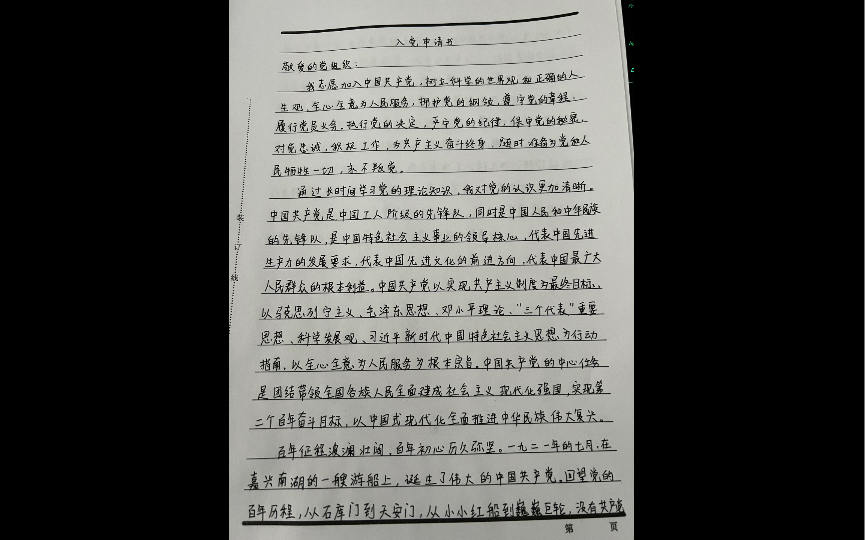 入党申请书
敬爱的党组织：
我志愿加入中国共产党，树立科学的世界观和正确的人
生观，全心全意为人民服务，拥护党的纲领，遵守党的章程，
履行党员义务，执行党的决定，严守党的纪律，保守党的秘密，
对党忠诚，积极工作，为共产主义奋斗终身，随时准备为党和人
民牺牲一切，永不叛党。
通过长时间学习党的理论知识，我对党的认识更加清晰。
中国共产党是中国工人阶级的先锋队，同时是中国人民和中华民族
的先锋队，是中国特色社会主义事业的领导核心，代表中国先进
生产力的发展要求，代表中国先进文化的前进方向，代表中国最广大
人民群众的根本利益。中国共产党以实现共产主义制度为最终目标，
以马克思列宁主义、毛泽东思想、邓小平理论、“三个代表”重要
思想、科学发展观、习近平新时代中国特色社会主义思想为行动
指南，以全心全意为人民服务为根本宗旨。中国共产党的中心任务
是团结带领全国各族人民全面建成社会主义现代化强国，实现第
二个百年奋斗目标，以中国式现代化全面推进中华民族伟大复兴。
百年征程波澜壮阔，百年初心历久弥坚。一九二一年的七月，在
嘉兴南湖的一艘游船上，诞生了伟大的中国共产党。回望党的
百年历程，从石库门到天安门，从小小红船到巍巍巨轮，没有共产党
装
订
线
第 页